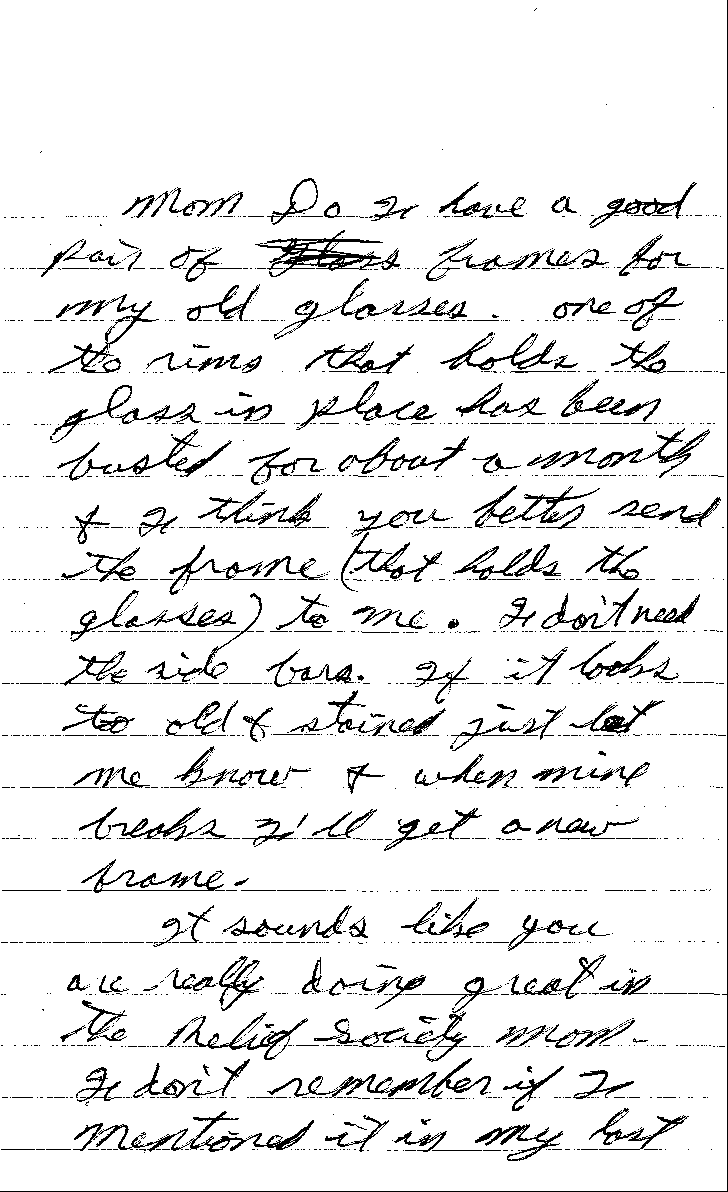 Mom Do I have a good
pair of frames for
my old glasses. one of
the rims that holds the
glass in place has been
busted for about a month
& I think you better send
the frame (that holds the
glasses) to me. I don't need
the side bars. If it looks
to old & stained just let
me know & when mine
breaks I'll get a new
frame.
It sounds like you
are really doing great in
the Relief Society mom.
I don't remember if I
mentioned it in my last